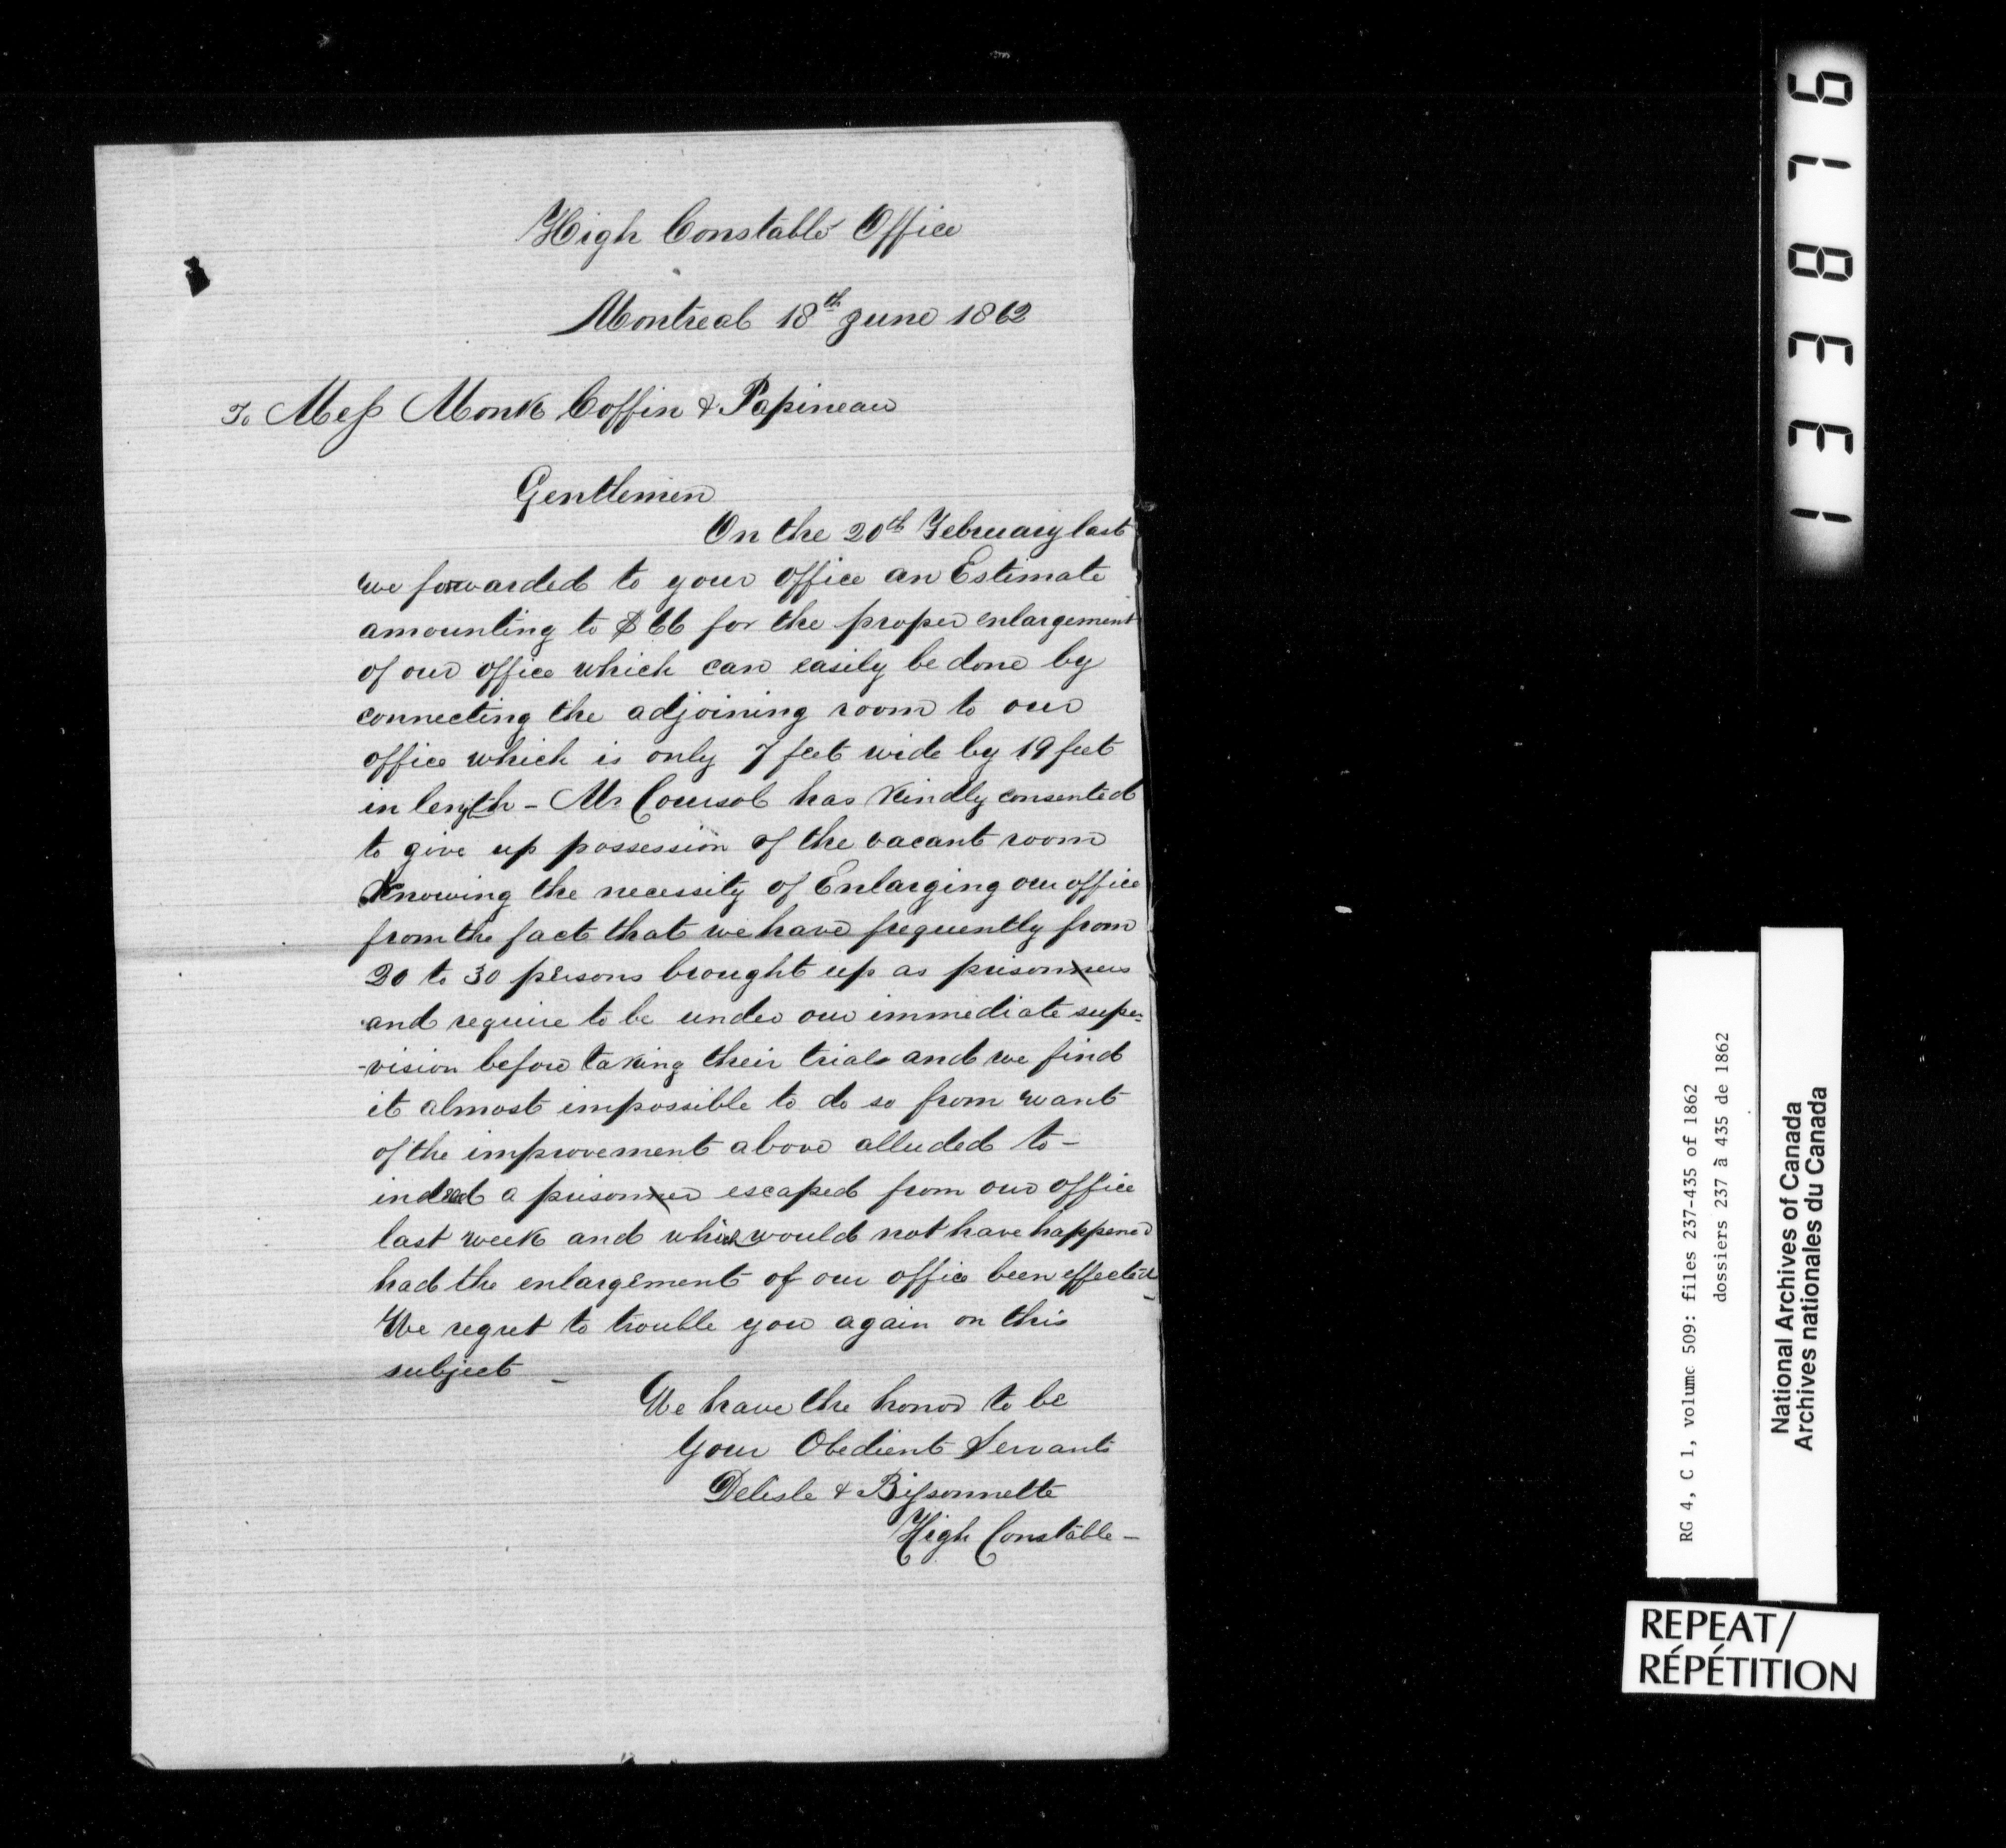 High Constable Office
Montreal 18th June 1862
To Mess Monk Coffin & Papineau
Gentlemen
On the 20th February last
we forwarded to your office an Estimate
amounting to $66 for the proper enlargement
of our office which can easily be done by
connecting the adjoining room to our
office which is only 7 feet wide by 19 feet
in length - Mr Coursol has kindly consented
to give up possession of the vacant room
Knowing the necessity of Enlarging our office
from the fact that we have frequently from
20 to 30 persons brought up as prisonners
and require to be under our immediate super-
-vision before taking their trials and we find
it almost impossible to do so from want
of the improvement above alluded to -
indeed a prisonner escaped from our office
last week and which would not have happened
had the enlargement of our office been effected -
We regret to trouble you again on this
subject -
We have the honor to be
Your Obedient Servants
Delisle & Bissonnette
High Constable -
133876
RG 4, C 1, volume 509: files 237-435 of 1862
dossiers 237 à 435 de 1862
National Archives of Canada
Archives nationales du Canada
REPEAT/
RÉPÉTITION